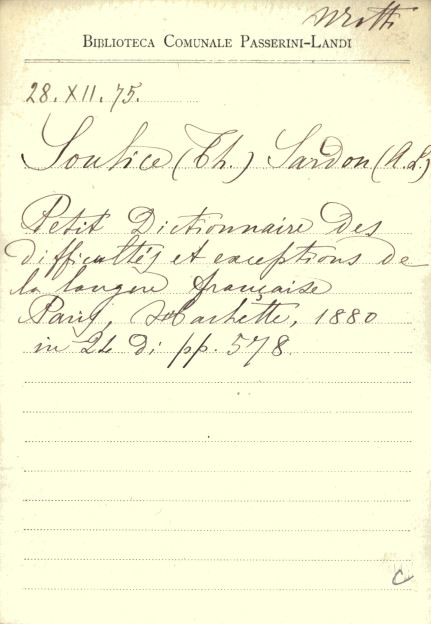 BIBLIOTECA COMUNALE PASSERINI-LANDI
28. XII. 75.
Soulice (Th.) Sardou (A. L.)
Petit Dictionnaire des
difficultés et exceptions de
la langue française
Paris, Hachette, 1880
in 24 di pp. 578.
C